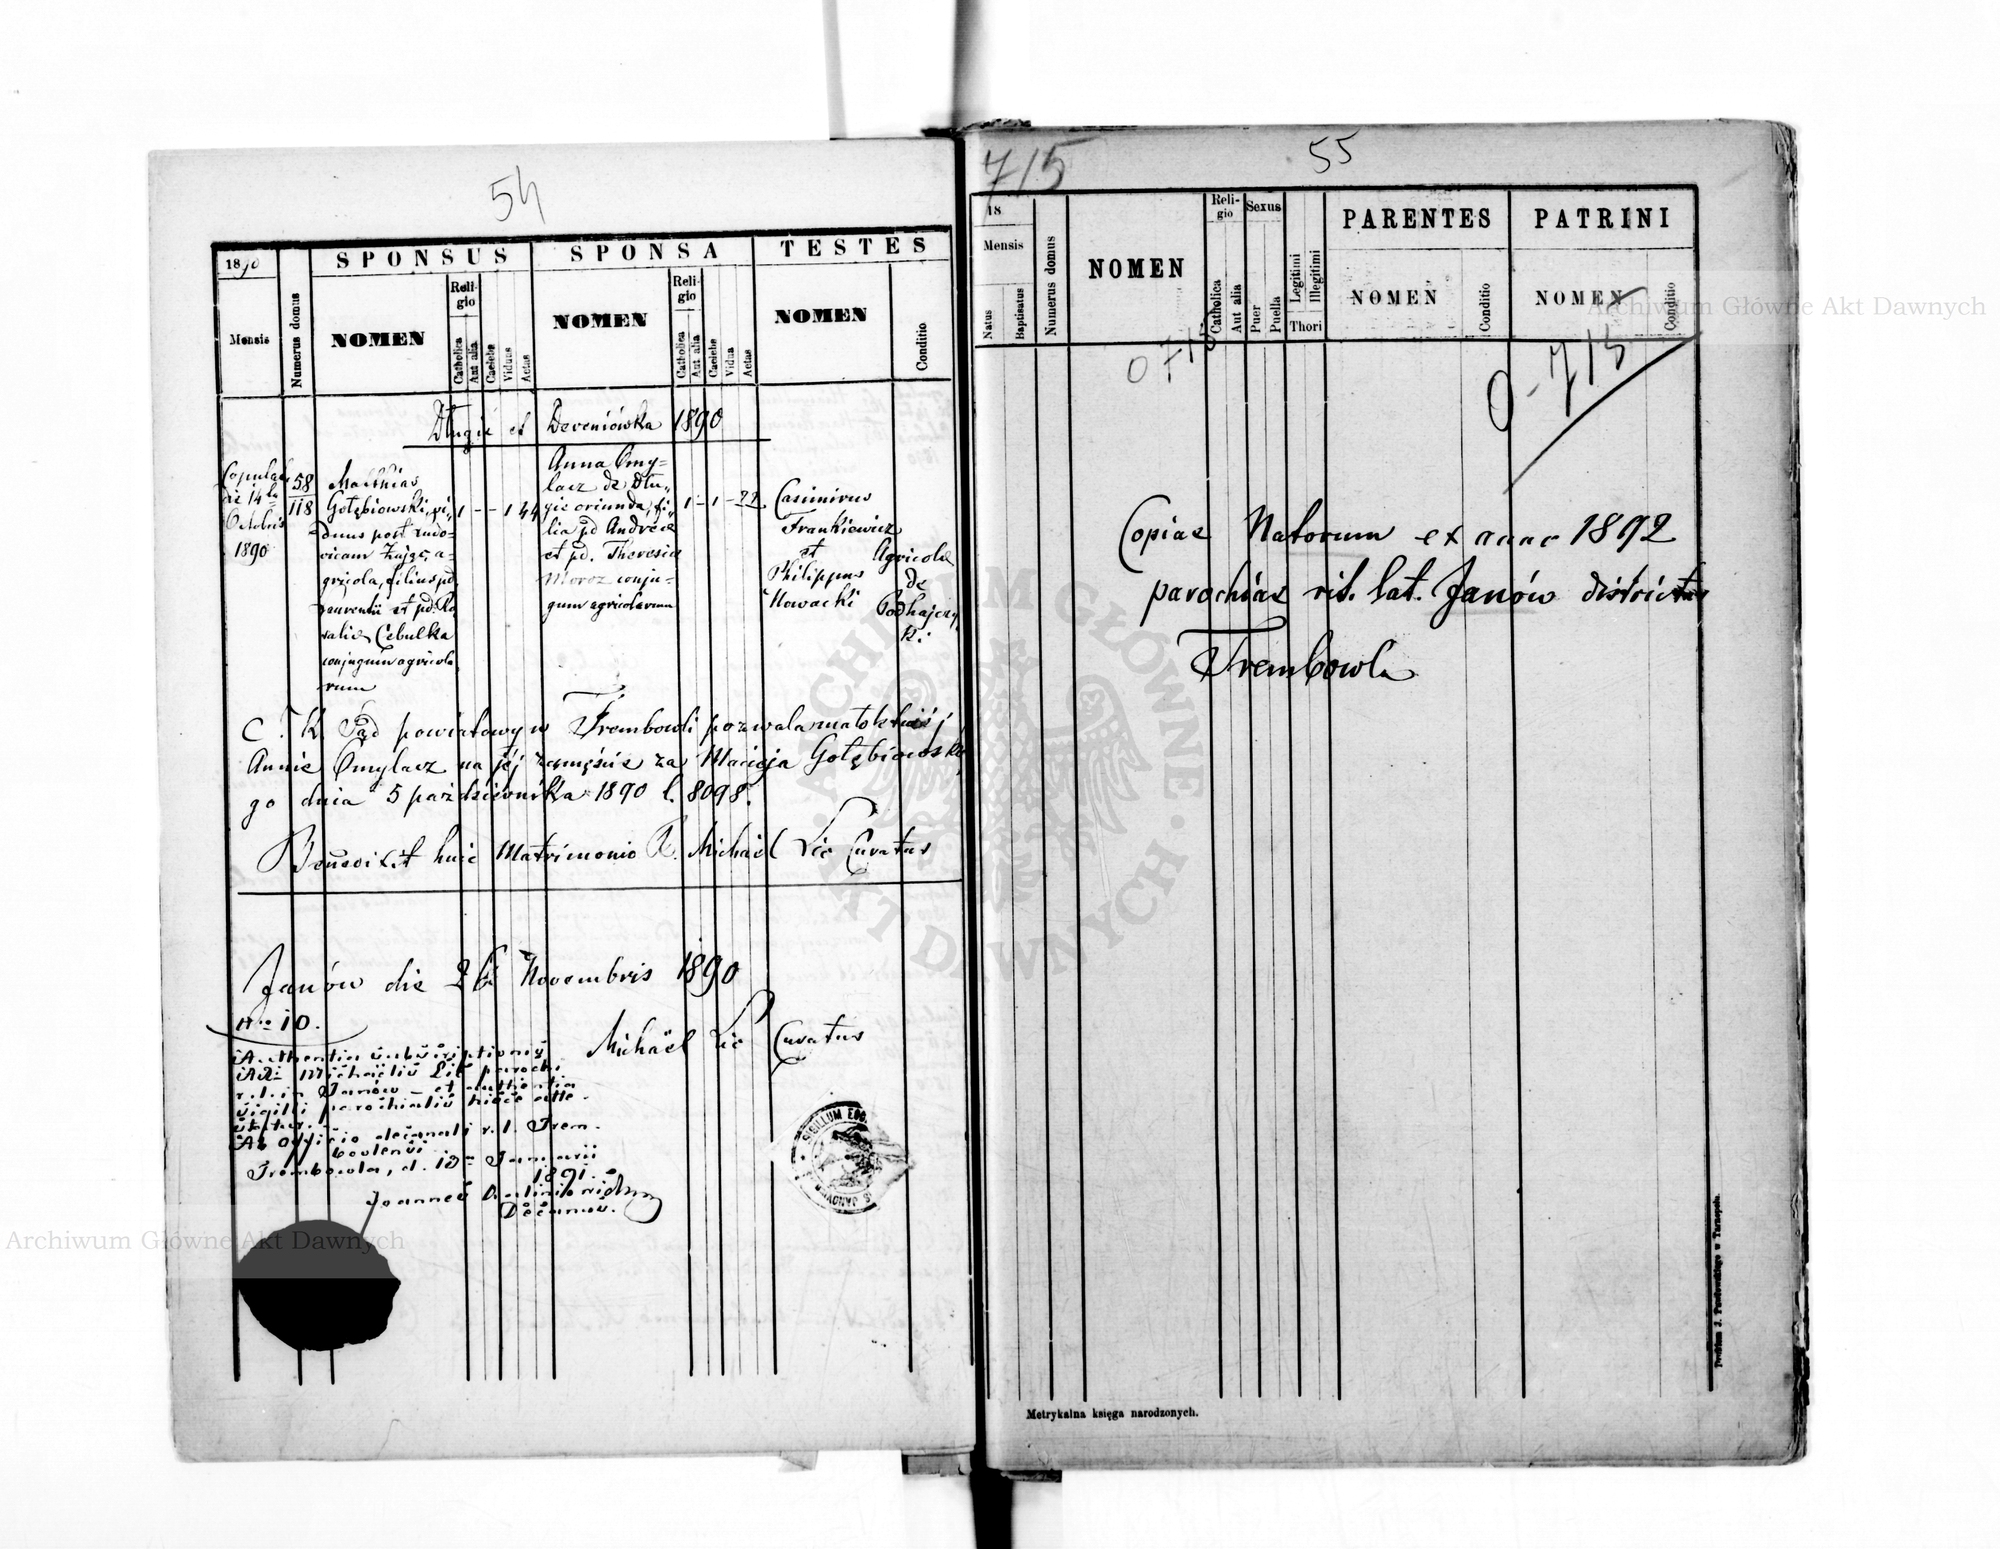 54
1890
SPONSUS
SPONSA
TESTES
Mensis
Numerus domus
NOMEN
Religio
Catholica
Aut alia
Caelebs
Viduus
Aetas
NOMEN
Religio
Catholica
Aut alia
Caelebs
Vidua
Aetas
NOMEN
Conditio
Długie et Dereniówka 1890
Copulati
die 14ta
Octobris
1890
58
118
Matthias
Gołębiowski, vi-
duus post Ludo-
vicam Zając, a-
gricola, filius pd
Laurentii et pd. Ro
salie Cebulka
conjugum agricola
rum
1 - - 1 44
Anna Omy-
lacz de Dłu-
gie oriunda, fi-
lia pd Andreae
et pd. Theresiae
Moroz conju-
gum agricolarum
1 - 1 - 22
Casimirus
Frankiewicz
et
Philippus
Nowacki
Agricolae
de
Podhajczy
ki
C. K. Sąd powiatowy w Trembowli pozwala małoletniej
Annie Omylacz na jej zamęście za Macieja Gołębiowskie
go dnia 5 października 1890 l. 8098.
Benedixit huic Matrimonio R. Michael Lic Curatus
Janów die 26 Novembris 1890
Nro 10.
Michäel Lic Curatus
Authentia subscriptionis
Michaelis Lic parochi
r. l. in Janów - et authentia
sigilli parochialis hisce atte-
statur.
Ab officio decanali r. l. Trem-
bowlensi
Trembowla, d. 10 Januarii
1891.
Joannes
Decanus.
SIGILLUM ECC.
715
55
18
Mensis
Natus
Baptisatus
Numerus domus
NOMEN
Religio
Catholica
Aut alia
Sexus
Puer
Puella
Legitimi
Illegitimi
Thori
PARENTES
NOMEN
Conditio
PATRINI
NOMEN
Conditio
0-715
0-715
Copiae Natorum ex anno 1892
parochiae rit. lat. Janów districtus
Trembowla
Metrykalna księga narodzonych.
Drukiem J. Pawłowskiego w Tarnopolu.
Archiwum Główne Akt Dawnych
Archiwum Główne Akt Dawnych
ARCHIWUM GŁÓWNE AKT DAWNYCH